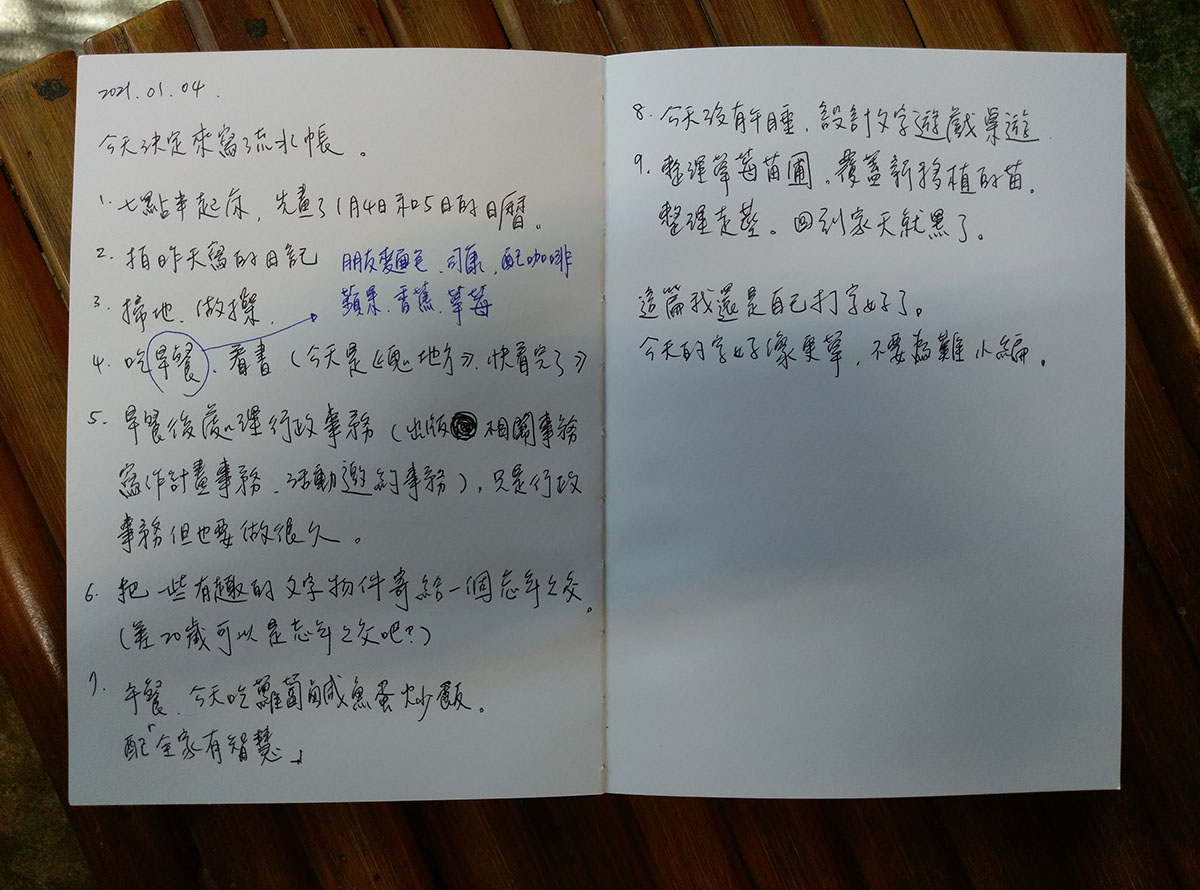 2021.01.04.
今天決定來寫流水帳。
1. 七點半起床,先畫了1月4日和5日的日曆。
2. 拍昨天寫的日記
朋友麵包、司康、配咖啡
3. 掃地、做操、
蘋果、香蕉、草莓
4. 吃早餐、看書(今天是《鬼地方》,快看完了》
5. 早餐後處理行政事務(出版相關事務
寫作計畫事務、活動邀約事務),只是行政
事務但也要做很久。
6. 把一些有趣的文字物件寄給一個忘年之交。
(差20歲可以是忘年之交吧?)
7. 午餐、今天吃蘿蔔鹹魚蛋炒飯。
配「全家有智慧」
8. 今天沒有午睡、設計文字遊戲桌遊.
9. 整理草莓苗圃,覆蓋新移植的苗。
整理走莖。回到家天就黑了。
這篇我還是自己打字好了。
今天的字好像更草,不要為難小編。